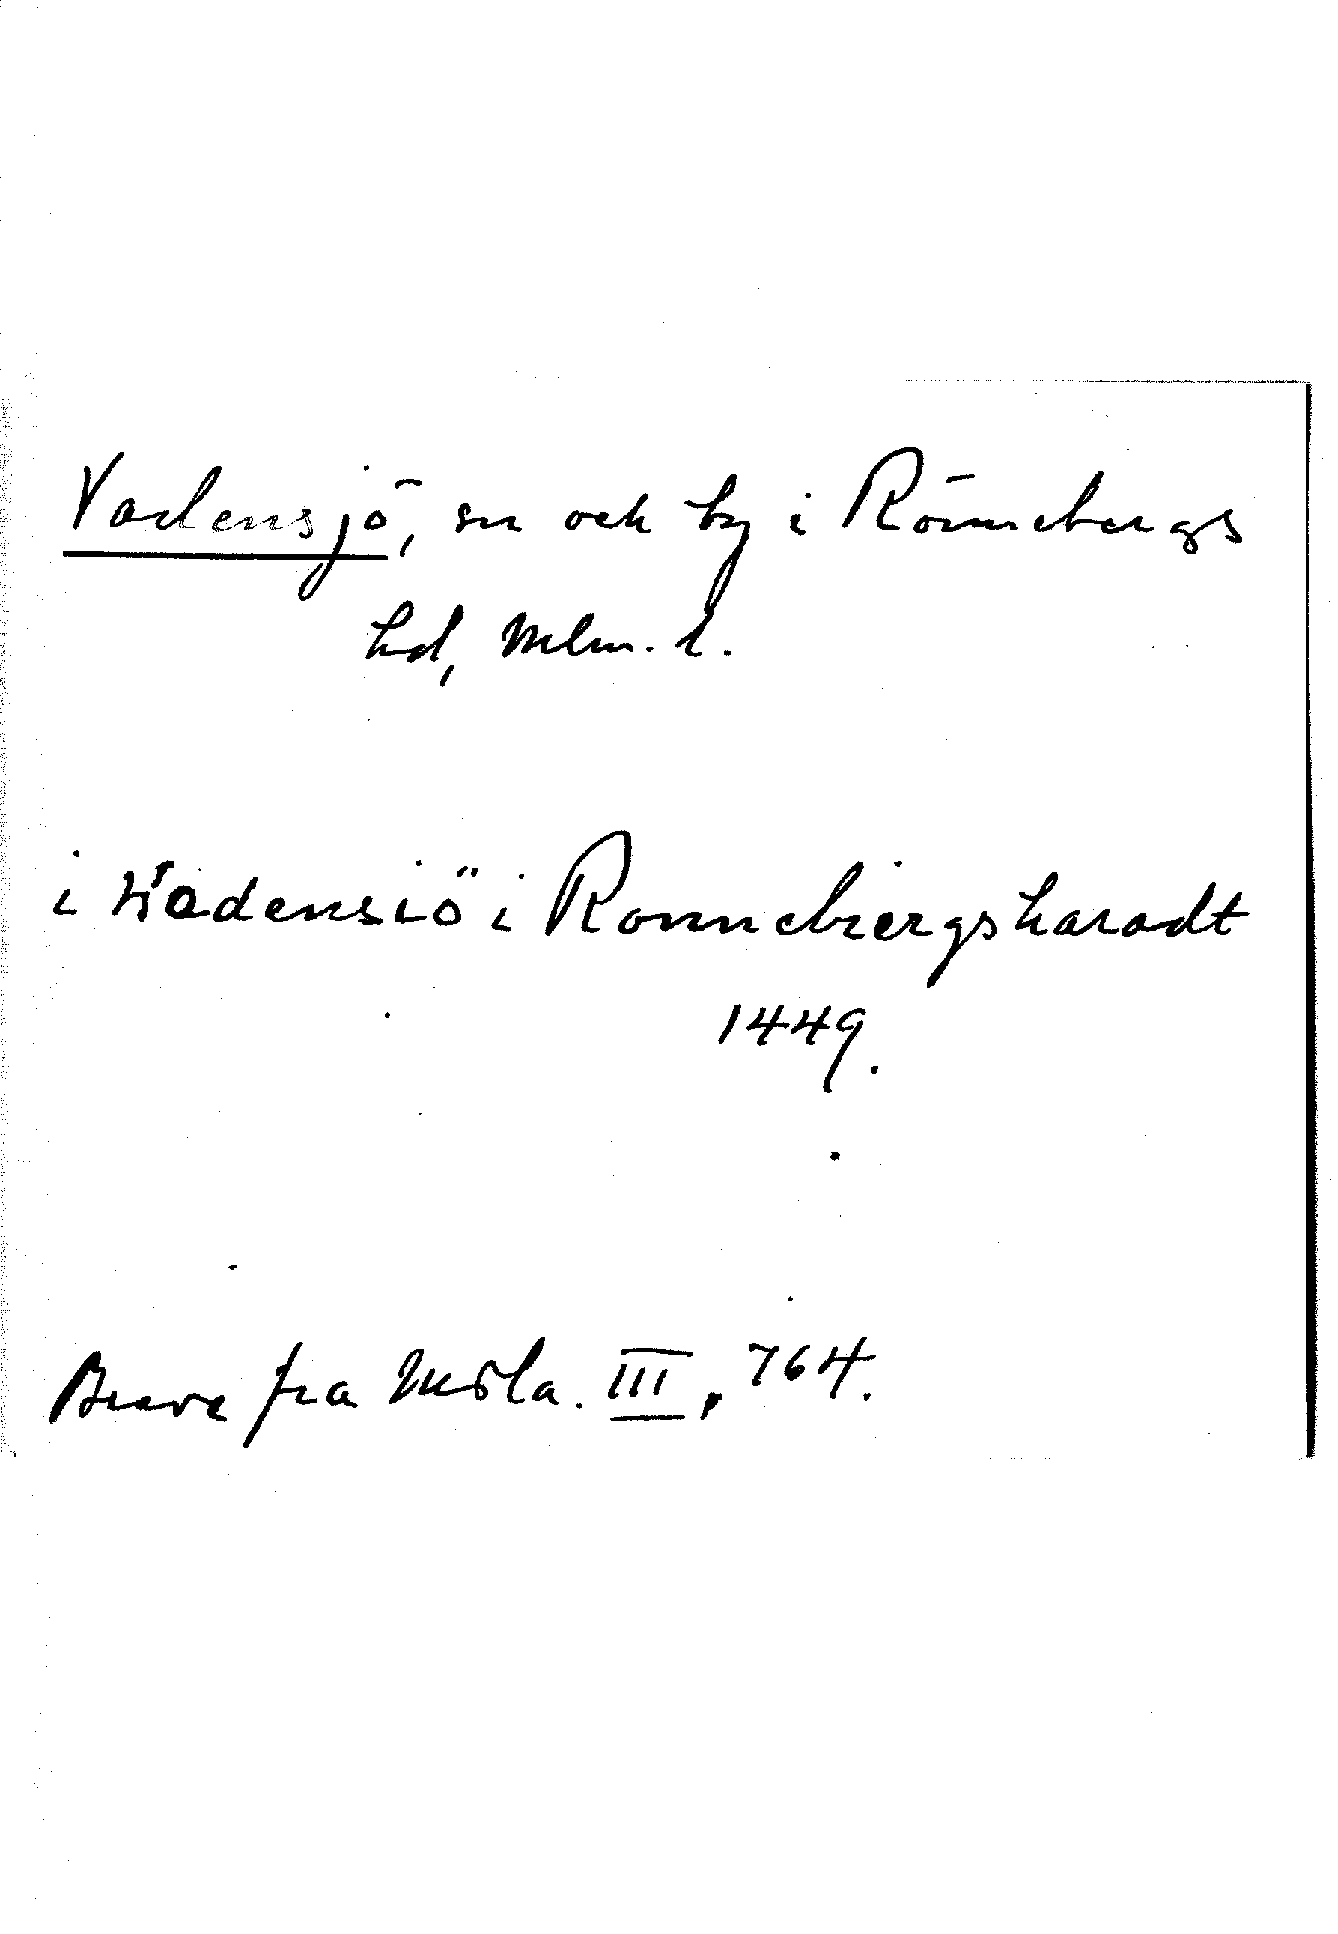 Vadensjö, sn och by i Rönnebergs
hd, Mlm. l.
i Wadensiö i Ronnebiergsharadt
1449.
Breve fra Midla. III, 764.